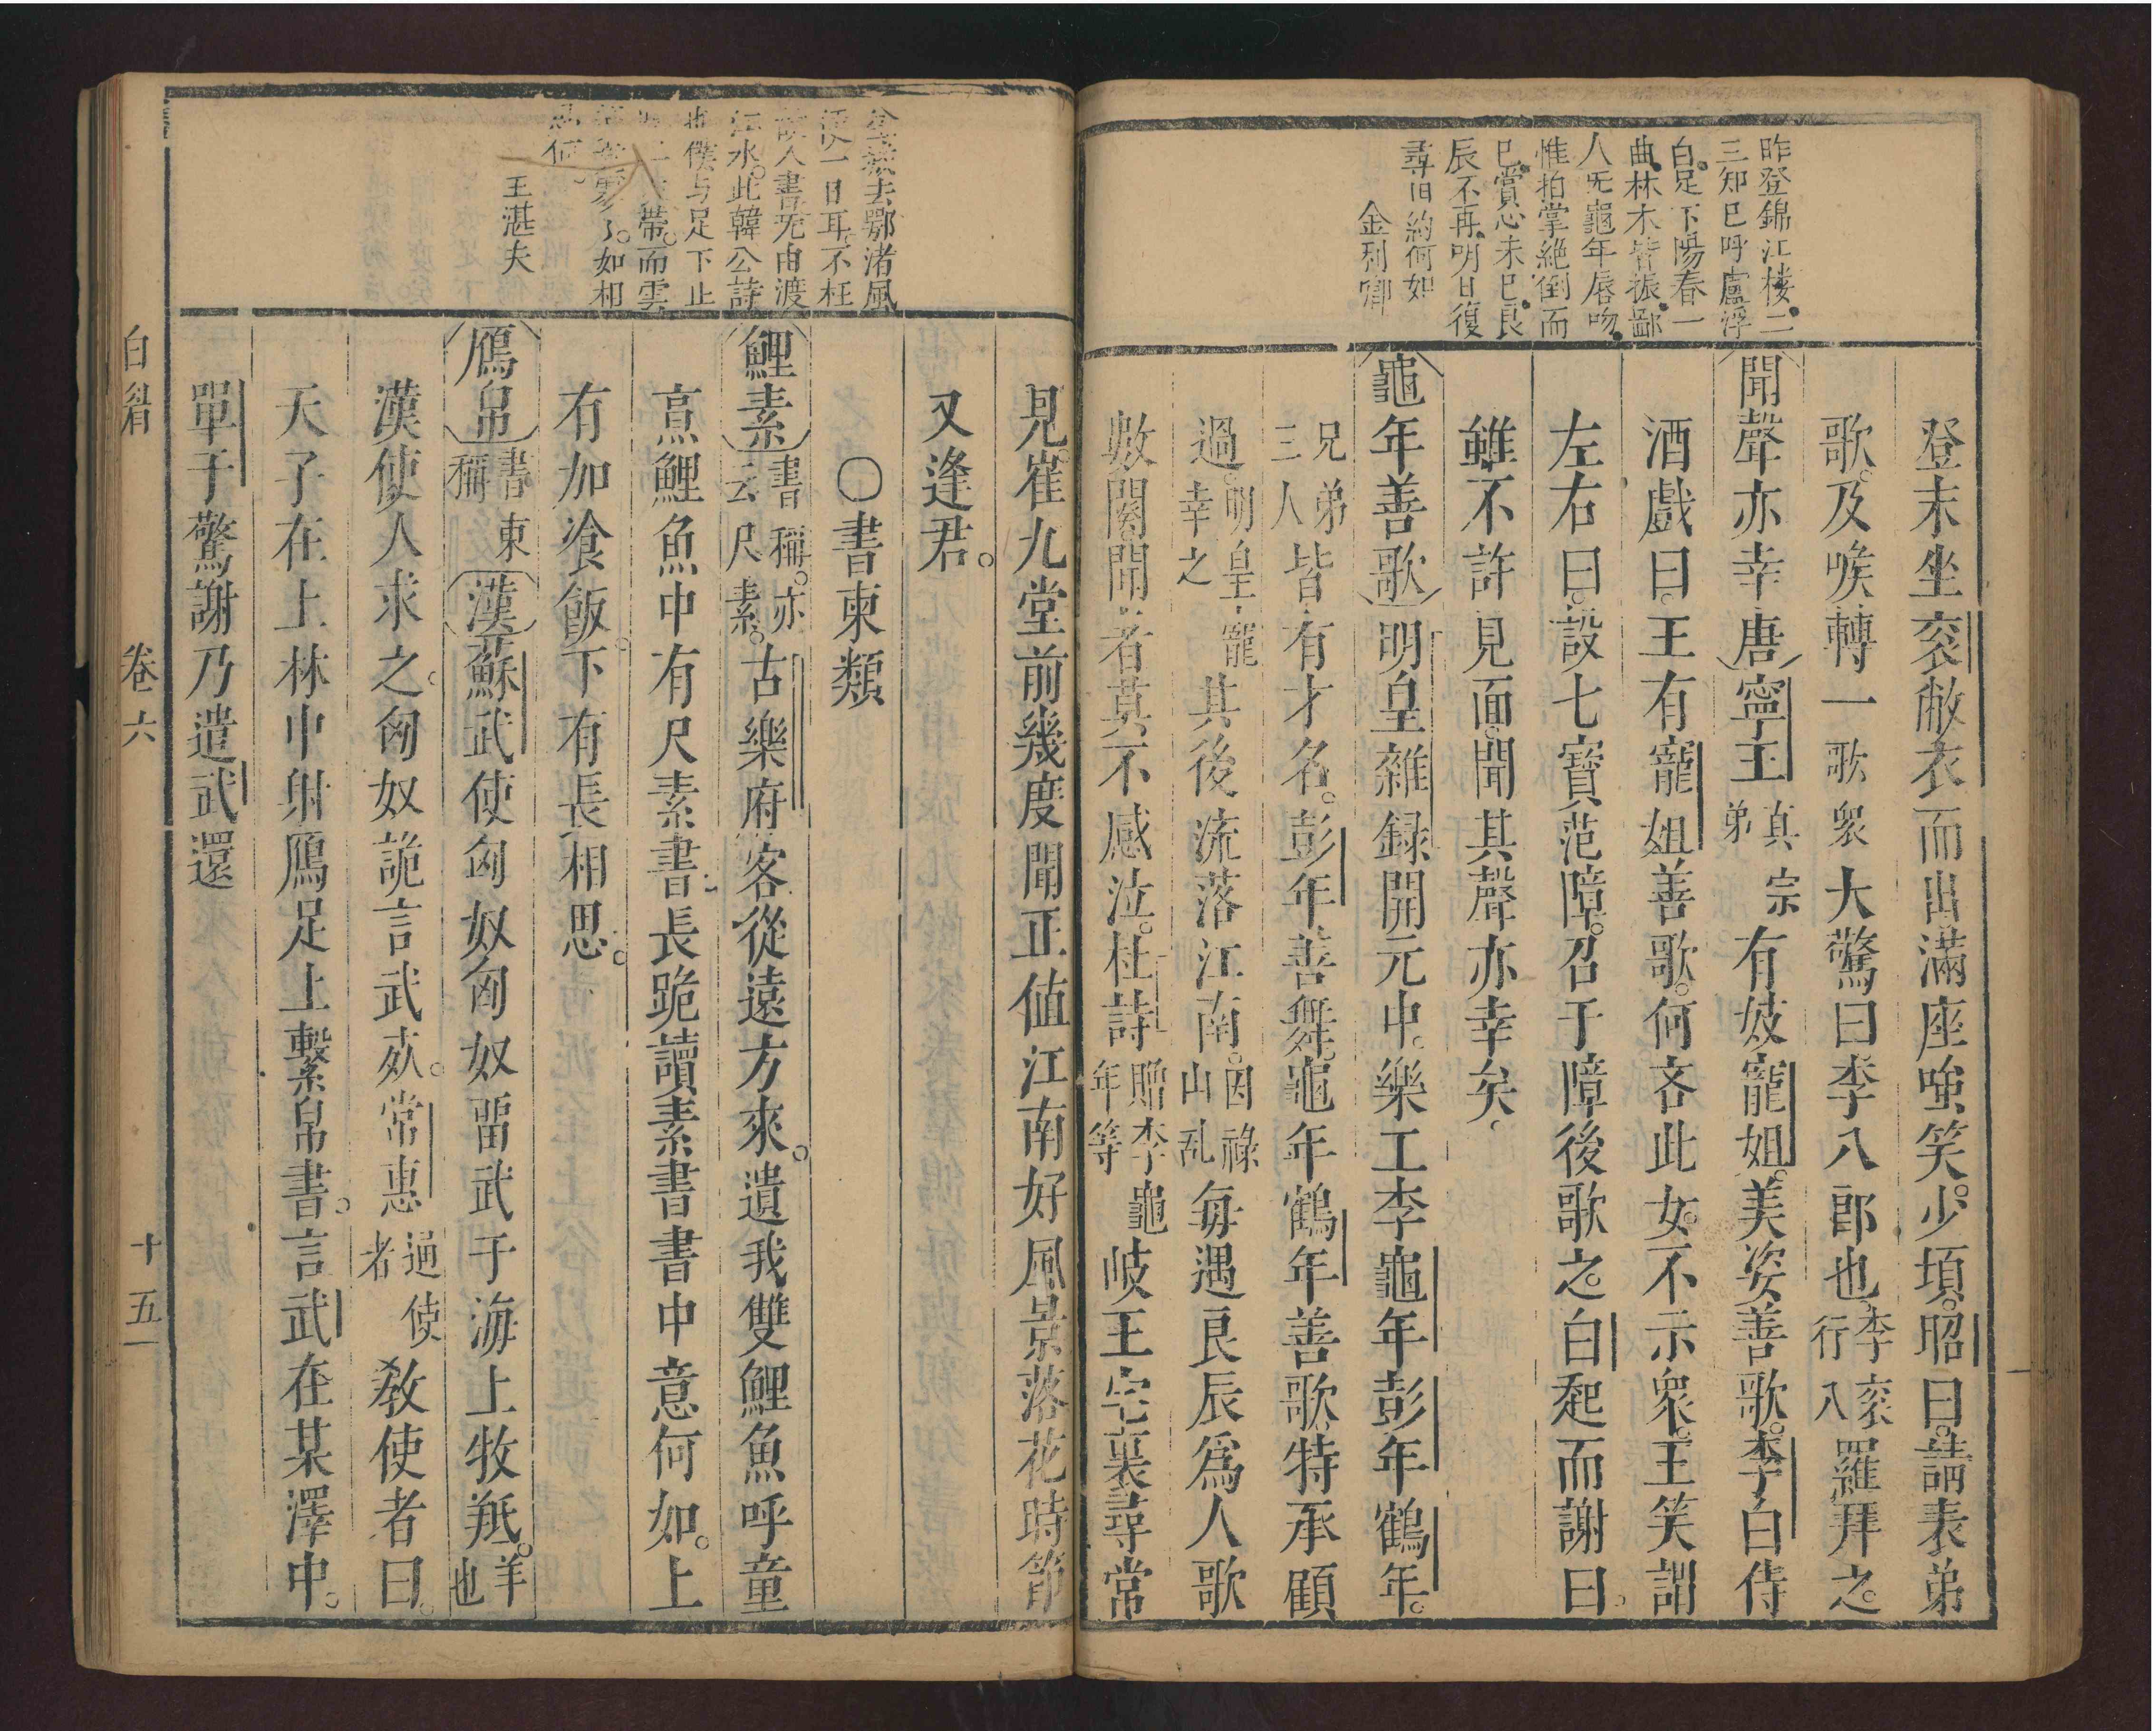 昨登錦江樓二
三知己呼盧浮
白足下陽春一
曲林木皆振鄙
人旣龜年唇吻
惟拍掌絕倒而
已賞心未已良
辰不再明日復
尋旧約何如
金利卿
登末坐衮敝衣而出滿座嗤笑。少頃。昭曰。請表弟
歌。及喉轉一歌衆大驚曰李八郎也李衮行八羅拜之。
聞聲亦幸唐寧王真宗弟有妓寵姐。美姿善歌。李白侍
酒戲曰。王有寵姐善歌。何吝此女。不示衆。王笑謂
左右曰。設七寶范障。召于障後歌之。白起而謝曰。
雖不許見面。聞其聲亦幸矣
龜年善歌明皇雜録開元中。樂工李龜年彭年鶴年。
兄弟三人皆有才名。彭年善舞。龜年鶴年善歌特承顧
過。明皇寵幸之其後流落江南。因祿山乱每遇良辰為人歌
數闋。聞者莫不感泣。杜詩贈李龜年等岐王宅裏尋常
去鄂渚風
一日耳。不枉
故人書无由渡
江水。此韓公詩
也僕与足下止
帶。而雲
了。如相
何
王湛夫
見。崔九堂前幾度聞正値江南好風景落花時節
又逢君。
〇書柬類
鯉素書稱。亦云尺素。古樂府客從遠方來。遺我雙鯉魚呼童
烹鯉魚中有尺素書長跪讀素書書中意何如。上
有加飡飯。下有長相思。
鴈帛書柬稱漢蘇武使匈奴匈奴畱武于海上牧羝。羊也
漢使人求之。匈奴詭言武死。常惠通使者敎使者曰。
天子在上林中射鴈足上繫帛書。言武在某澤中。
單于驚謝乃遣武還
白眉
卷六
十五